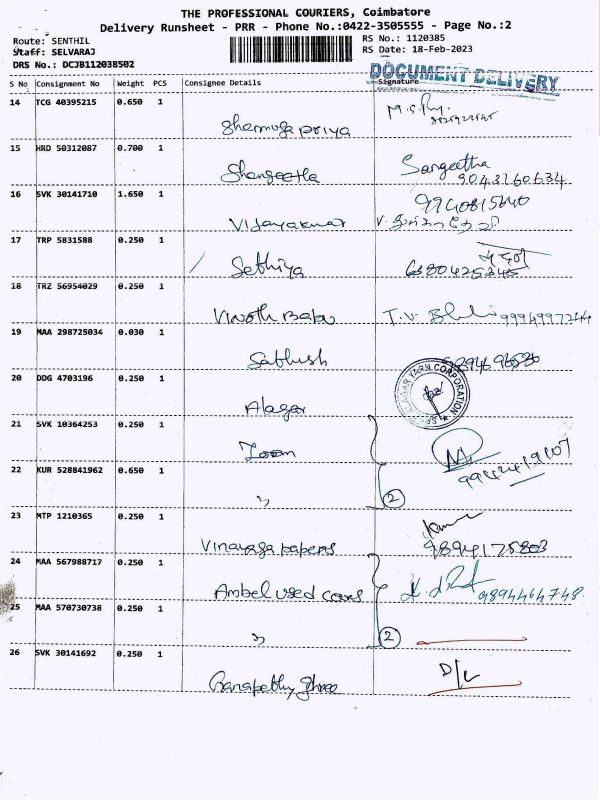 THE PROFESSIONAL COURIERS, Coimbatore
Delivery Runsheet - PRR - Phone No.:0422-3505555 - Page No.:2
Route: SENTHIL
RS No.: 1120385
Staff: SELVARAJ
RS Date: 18-Feb-2023
DRS No.: DCJB112038502
DOCUMENT DELIVERY
S No Consignment No Weight PCS Consignee Details Signature
14 TCG 40395215 0.650 1
Shamuga priya
15 HRD 50312087 0.700 1
Shangeetha Sangeetha
9043160634
16 SVK 30141710 1.650 1 9940815640
Vijayakumar
17 TRP 5831588 0.250 1
Sethiya
18 TRZ 56954029 0.250 1
Vinoth Babu T.V.
19 MAA 298725034 0.030 1
Sathish 9894696586
20 DDG 4703196 0.250 1
YARN CORPORATION
Alagar
21 SVK 10364253 0.250 1
Zoom
22 KUR 528841962 0.650 1
" 2
23 MTP 1210365 0.250 1
Vinayaga papers 9894175803
24 MAA 567988717 0.250 1
Ambel used cars 9894464748
25 MAA 570730738 0.250 1
" 2
26 SVK 30141692 0.250 1
Ganapathy Shree D/L